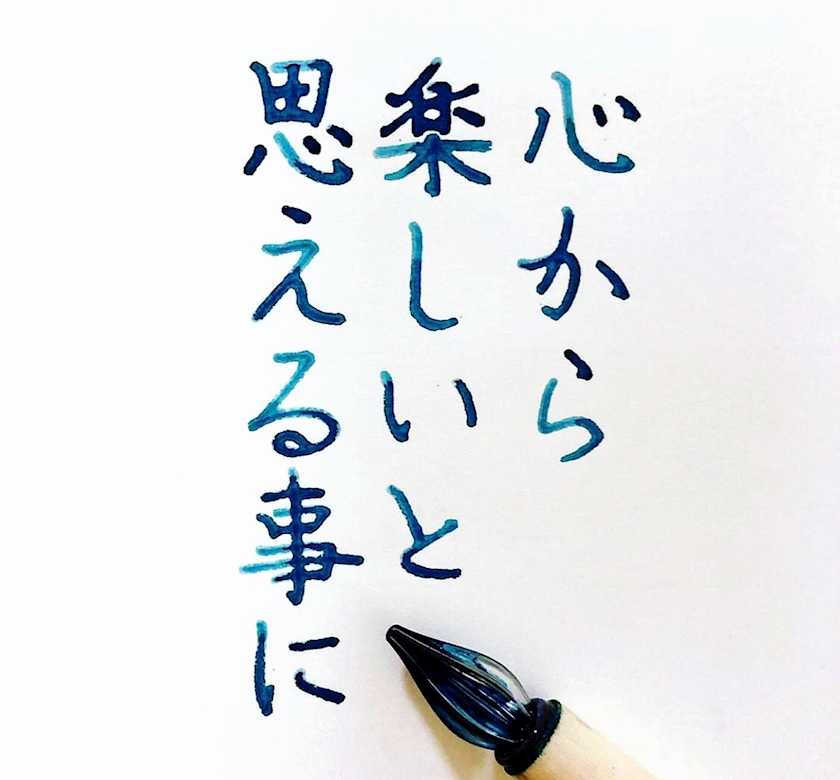 心から
楽しいと
思える事に